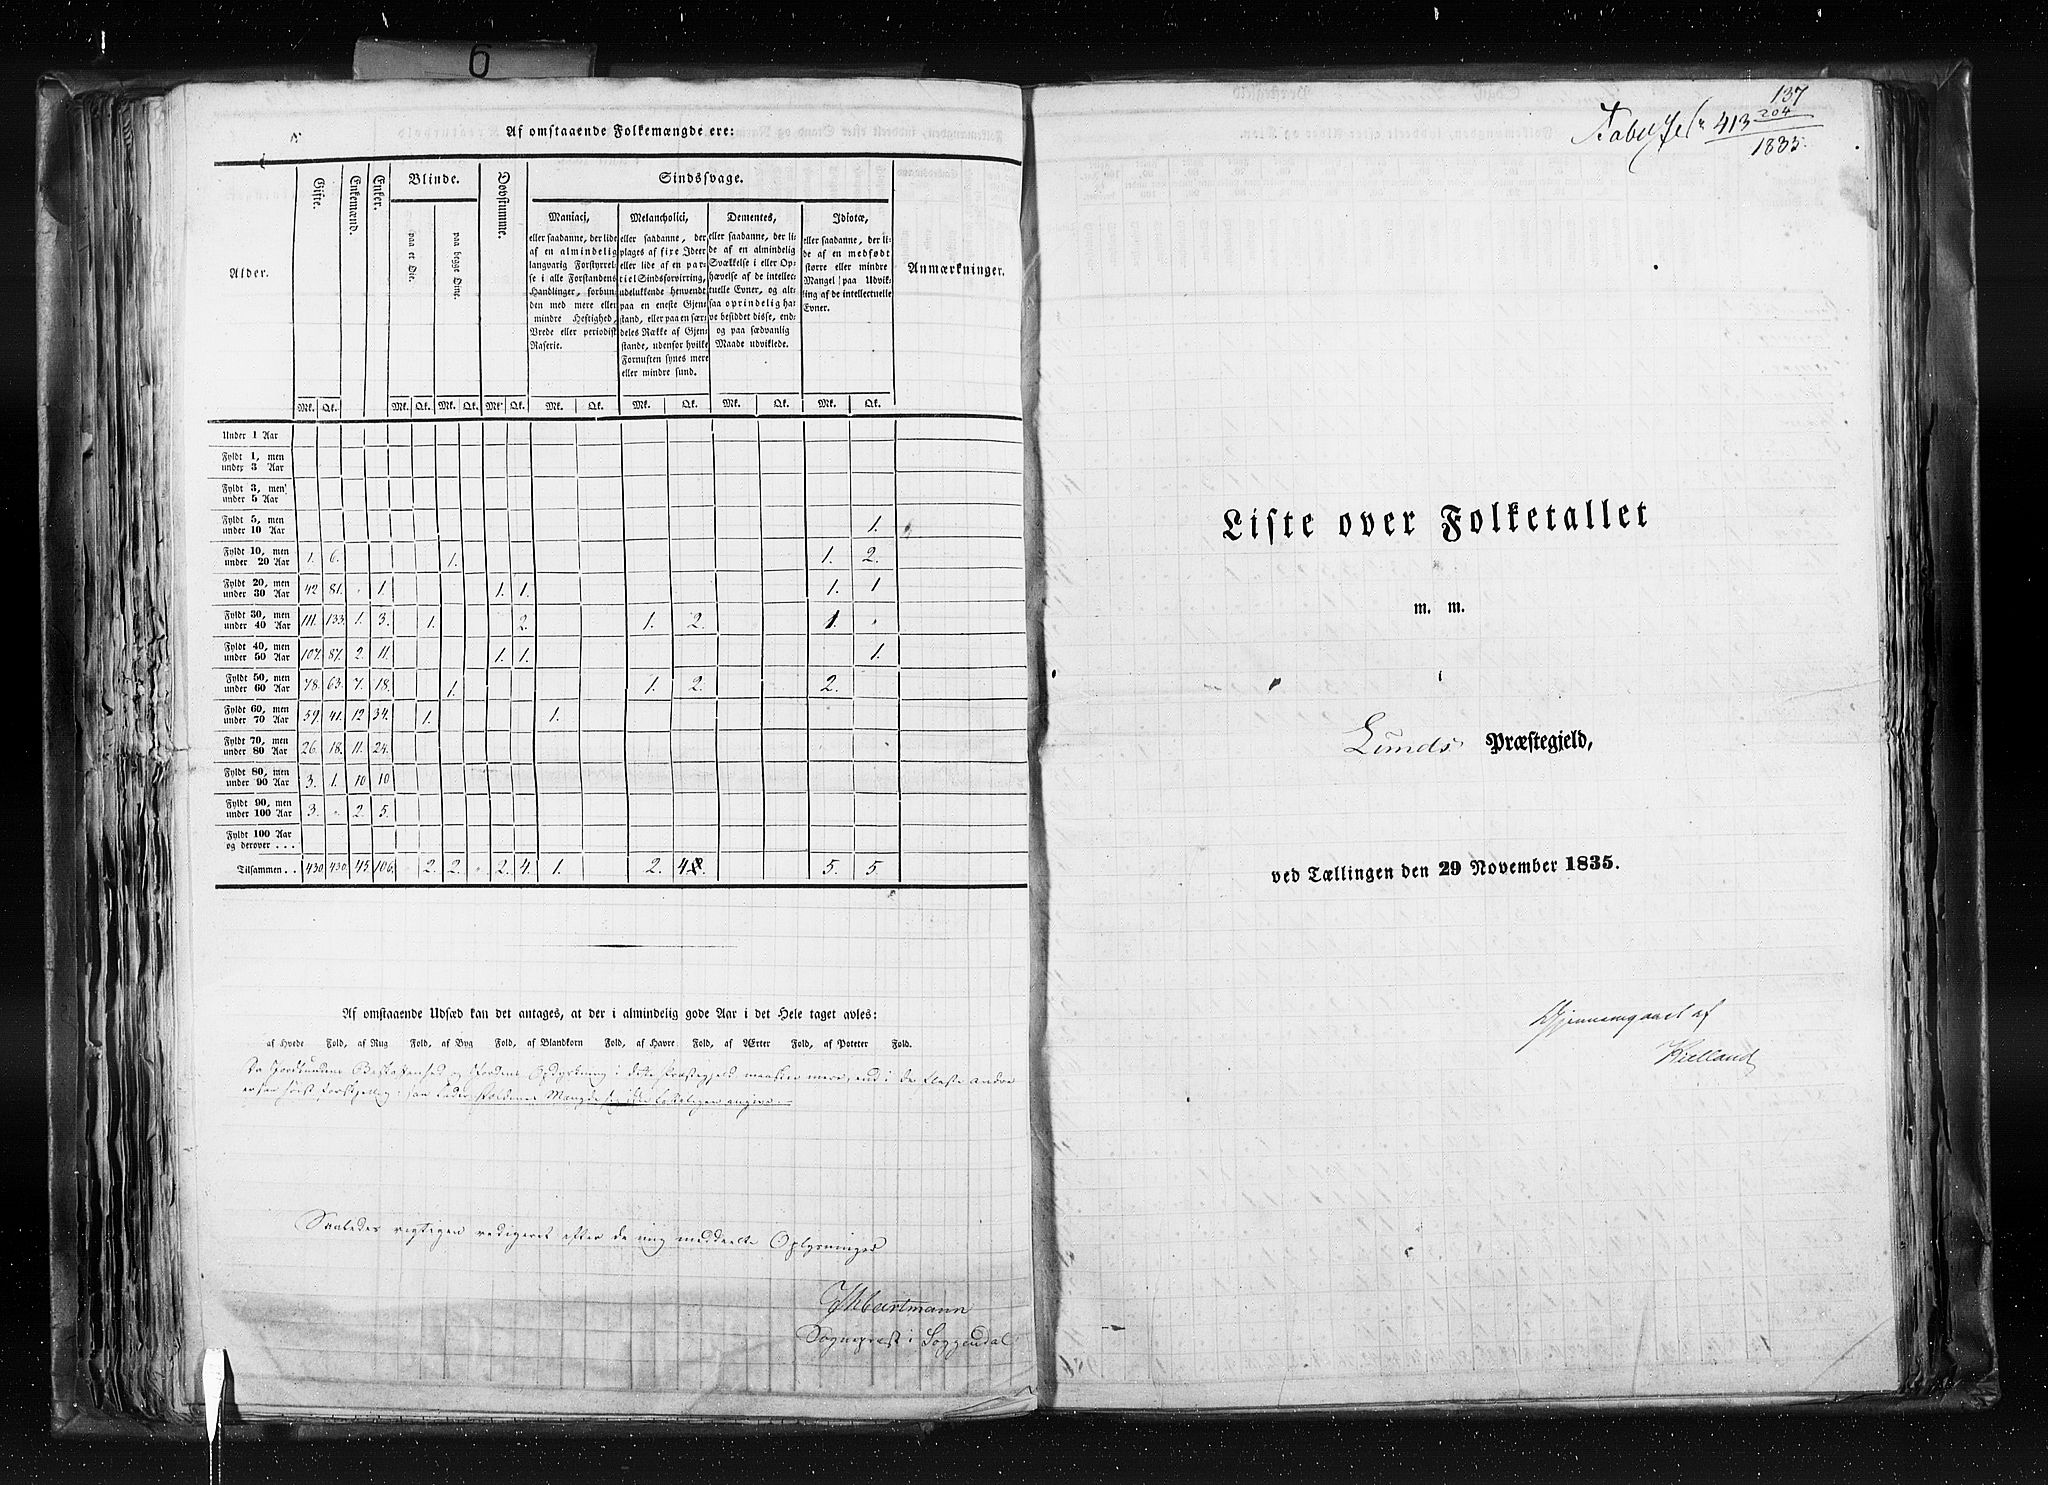 6
Af omstaaende Folkemængde ere:
Alder.
Gifte.
Enkemænd.
Enker.
Blinde.
paa et Øie.
paa begge Øine.
Døvstumme.
Sindssvage.
Maniaci,
eller saadanne, der lide
af en almindelig
langvarig Forstyrrel-
se i alle Forstandens
Handlinger, forbun-
den med mere eller
mindre Heftighed,
Vrede eller periodisk
Raserie.
Melancholici,
eller saadanne, der
plages af fixe Ideer
eller lide af en par-
tiel Sindsforvirring,
udelukkende henvendt
paa en eneste Gjen-
stand, eller paa en sær-
deles Række af Gjen-
stande, udenfor hvilke
Fornuften synes mere
eller mindre sund.
Dementes,
eller saadanne, der li-
de af en almindelig
Svækkelse i eller Op-
hævelse af de intellec-
tuelle Evner, og alt-
saa oprindelig ha-
ve besiddet disse, end-
og paa sædvanlig
Maade udviklede.
Idiotæ,
eller saadanne, der li-
de af en medfødt
større eller mindre
Mangel paa Udvik-
ling af de intellectuelle
Evner.
Anmærkninger.
Mk. Qk. Mk. Qk. Mk. Qk. Mk. Qk. Mk. Qk. Mk. Qk. Mk. Qk. Mk. Qk.
Under 1 Aar
Fyldt 1, men
under 3 Aar
Fyldt 3, men
under 5 Aar
Fyldt 5, men
under 10 Aar 1.
Fyldt 10, men
under 20 Aar 1. 6. 1. 1. 2.
Fyldt 20, men
under 30 Aar 42 81. 1. 1. 1. 1. 1
Fyldt 30, men
under 40 Aar 111. 133. 1. 3. 1. 2. 1. 2. 1.
Fyldt 40, men
under 50 Aar 107. 87. 2. 11. 1. 1. 1.
Fyldt 50, men
under 60 Aar 78. 63. 7. 18. 1. 1. 2. 2.
Fyldt 60, men
under 70 Aar 59. 41. 12 34. 1. 1.
Fyldt 70, men
under 80 Aar 26. 18. 11. 24.
Fyldt 80, men
under 90 Aar 3. 1. 10 10
Fyldt 90, men
under 100 Aar 3. 2. 5.
Fyldt 100 Aar
og derover . . .
Tilsammen . . 430 430. 45 106. 2. 2. 2. 4. 1. 2. 4 5. 5.
Af omstaaende Udsæd kan det antages, at der i almindelig gode Aar i det Hele taget avles:
af Hvede Fold, af Rug Fold, af Byg Fold, af Blandkorn Fold, af Havre Fold, af Ærter Fold, af Poteter Fold.
Da Jordbundens Beskaffenhed og Jordens Opdyrkning i dette Præstegjeld maaskee mere, end i de fleste andre
er høist forskjellig, saa lader Foldenes Mængde sig ikke angive.
Saaledes rigtigen redigeret efter de mig meddeelte Oplysninger
Hartmann
Sognepræst i Soggendal
137
413 204
1835.
Liste over Folketallet
m. m.
i
Lunds Præstegjeld,
ved Tællingen den 29 November 1835.
Gjennemgaaet af
Kielland